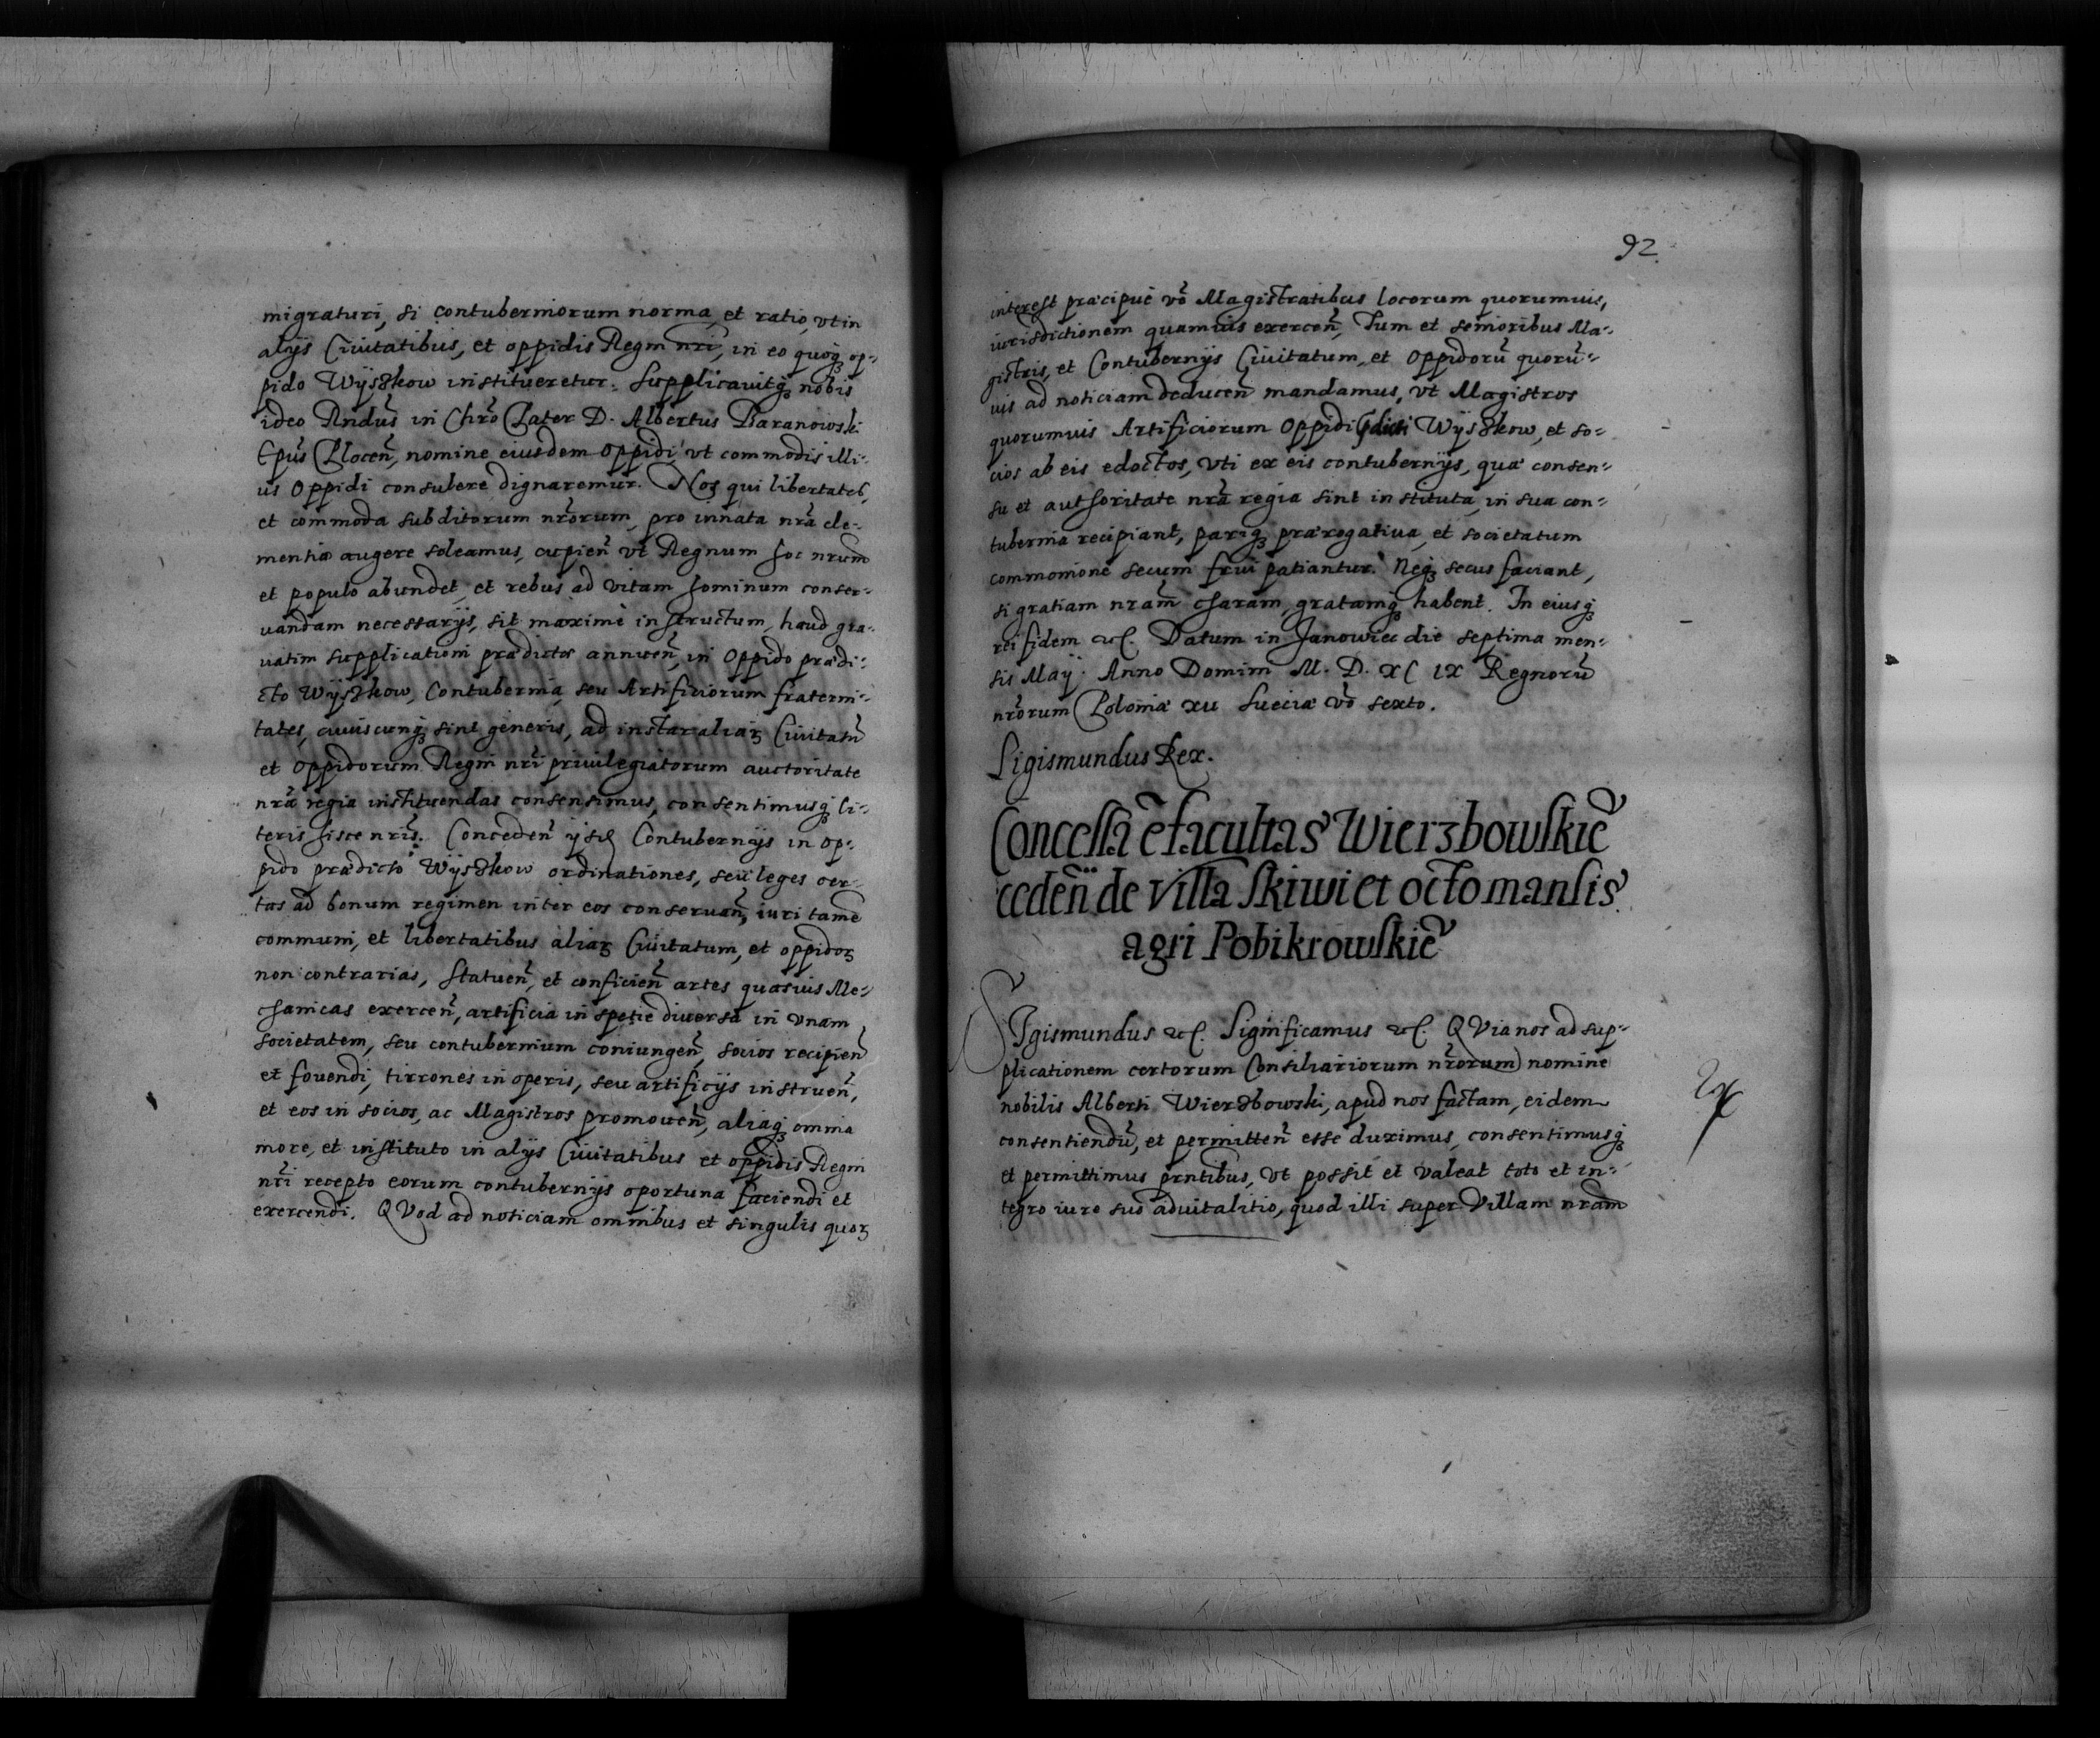 migraturi, si contuberniorum norma, et ratio, vt in
alijs Ciuitatibus, et oppidis Regni nrī, in eo quoq₃ op-
pido Wyszkow institueretur. Supplicauitq₃ nobis
ideo Rndus̄ in Chrō Pater D. Albertus Baranowski
Epus̄ Plocen̄, nomine eiusdem oppidi vt commodis illi-
us Oppidi consulere dignaremur. Nos qui libertates,
et commoda subditorum nrōrum, pro innata nrā cle-
mentia augere soleamus, cupien̄ vt Regnum hoc nrum̄
et populo abundet, et rebus ad vitam hominum conser-
uandam necessarijs, sit maximè instructum, haud gra-
uatim supplicationi prædictæ annuen̄, in Oppido prædi-
cto Wyszkow, Contubernia, seu Artificiorum fraterni-
tates, cuiuscunq₃ sint generis, ad instar aliaꝝ Ciuitatū
et Oppidorum Regni nrī priuilegiatorum auctoritate
nrā regia instituendas consensimus, consentimusq₃ li-
teris hisce nrīs. Conceden̄ ijsd Contubernijs in op-
pido prædicto Wyszkow ordinationes, seu leges cer-
tas ad bonum regimen inter eos conseruan̄, iuri tamē
communi, et libertatibus aliaꝝ Ciuitatum, et oppidoꝝ
non contrarias, statuen̄, et conficien̄ artes quasuis Me-
chanicas exercen̄, artificia in spetie diuersa in vnam
societatem, seu contubernium coniungen̄, socios recipien̄
et fouendi, tirrones in operis, seu artificijs instruen̄,
et eos in socios, ac Magistros promouen̄, aliaq₃ omnia
more, et instituto in alijs Ciuitatibus et oppidis Regni
nrī recepto eorum contubernijs oportuna faciendi et
exercendi. QVod ad noticiam omnibus et singulis quoꝝ
92.
interest præcipuè vō Magistratibus locorum quorumuis,
iurisdictionem quamuis exercen̄, Tum et senioribus Ma-
gistris, et Contubernijs Ciuitatum, et Oppidorū quorū-
uis ad noticiam deducen̄ mandamus, vt Magistros
quorumuis Artificiorum Oppidi Wyszkow, et so-
cios ab eis edoctos, vti ex eis contubernijs, quæ consen-
su et authoritate nrā regia sint instituta, in sua con-
tubernia recipiant, pariq₃ prærogatiua, et societatum
commonione secum frui patiantur. Neq₃ secus faciant,
si gratiam nram̄ charam, gratamq₃ habent. In eiusq₃
rei fidem etc. Datum in Janowiec die septima men-
sis Maÿ. Anno Domini M. D. XC IX Regnorū
nrōrum Poloniæ XII Sueciæ vō sexto.
Sigismundus Rex.
Concessa ē facultas Wierzbowskiē
ceden̄ de villa Skiwi et octo mansis
agri Pobikrowskiē
SIgismundus etc. Significamus etc. QVia nos ad sup-
plicationem certorum Consiliariorum nrōrum nomine
nobilis Alberti Wierzbowski, apud nos factam, eidem
consentiendū, et permitten̄ esse duximus, consentimusq₃
et permittimus prntibus, vt possit et valeat toto et in-
tegro iure suo aduitalitio, quod illi super Villam nram̄